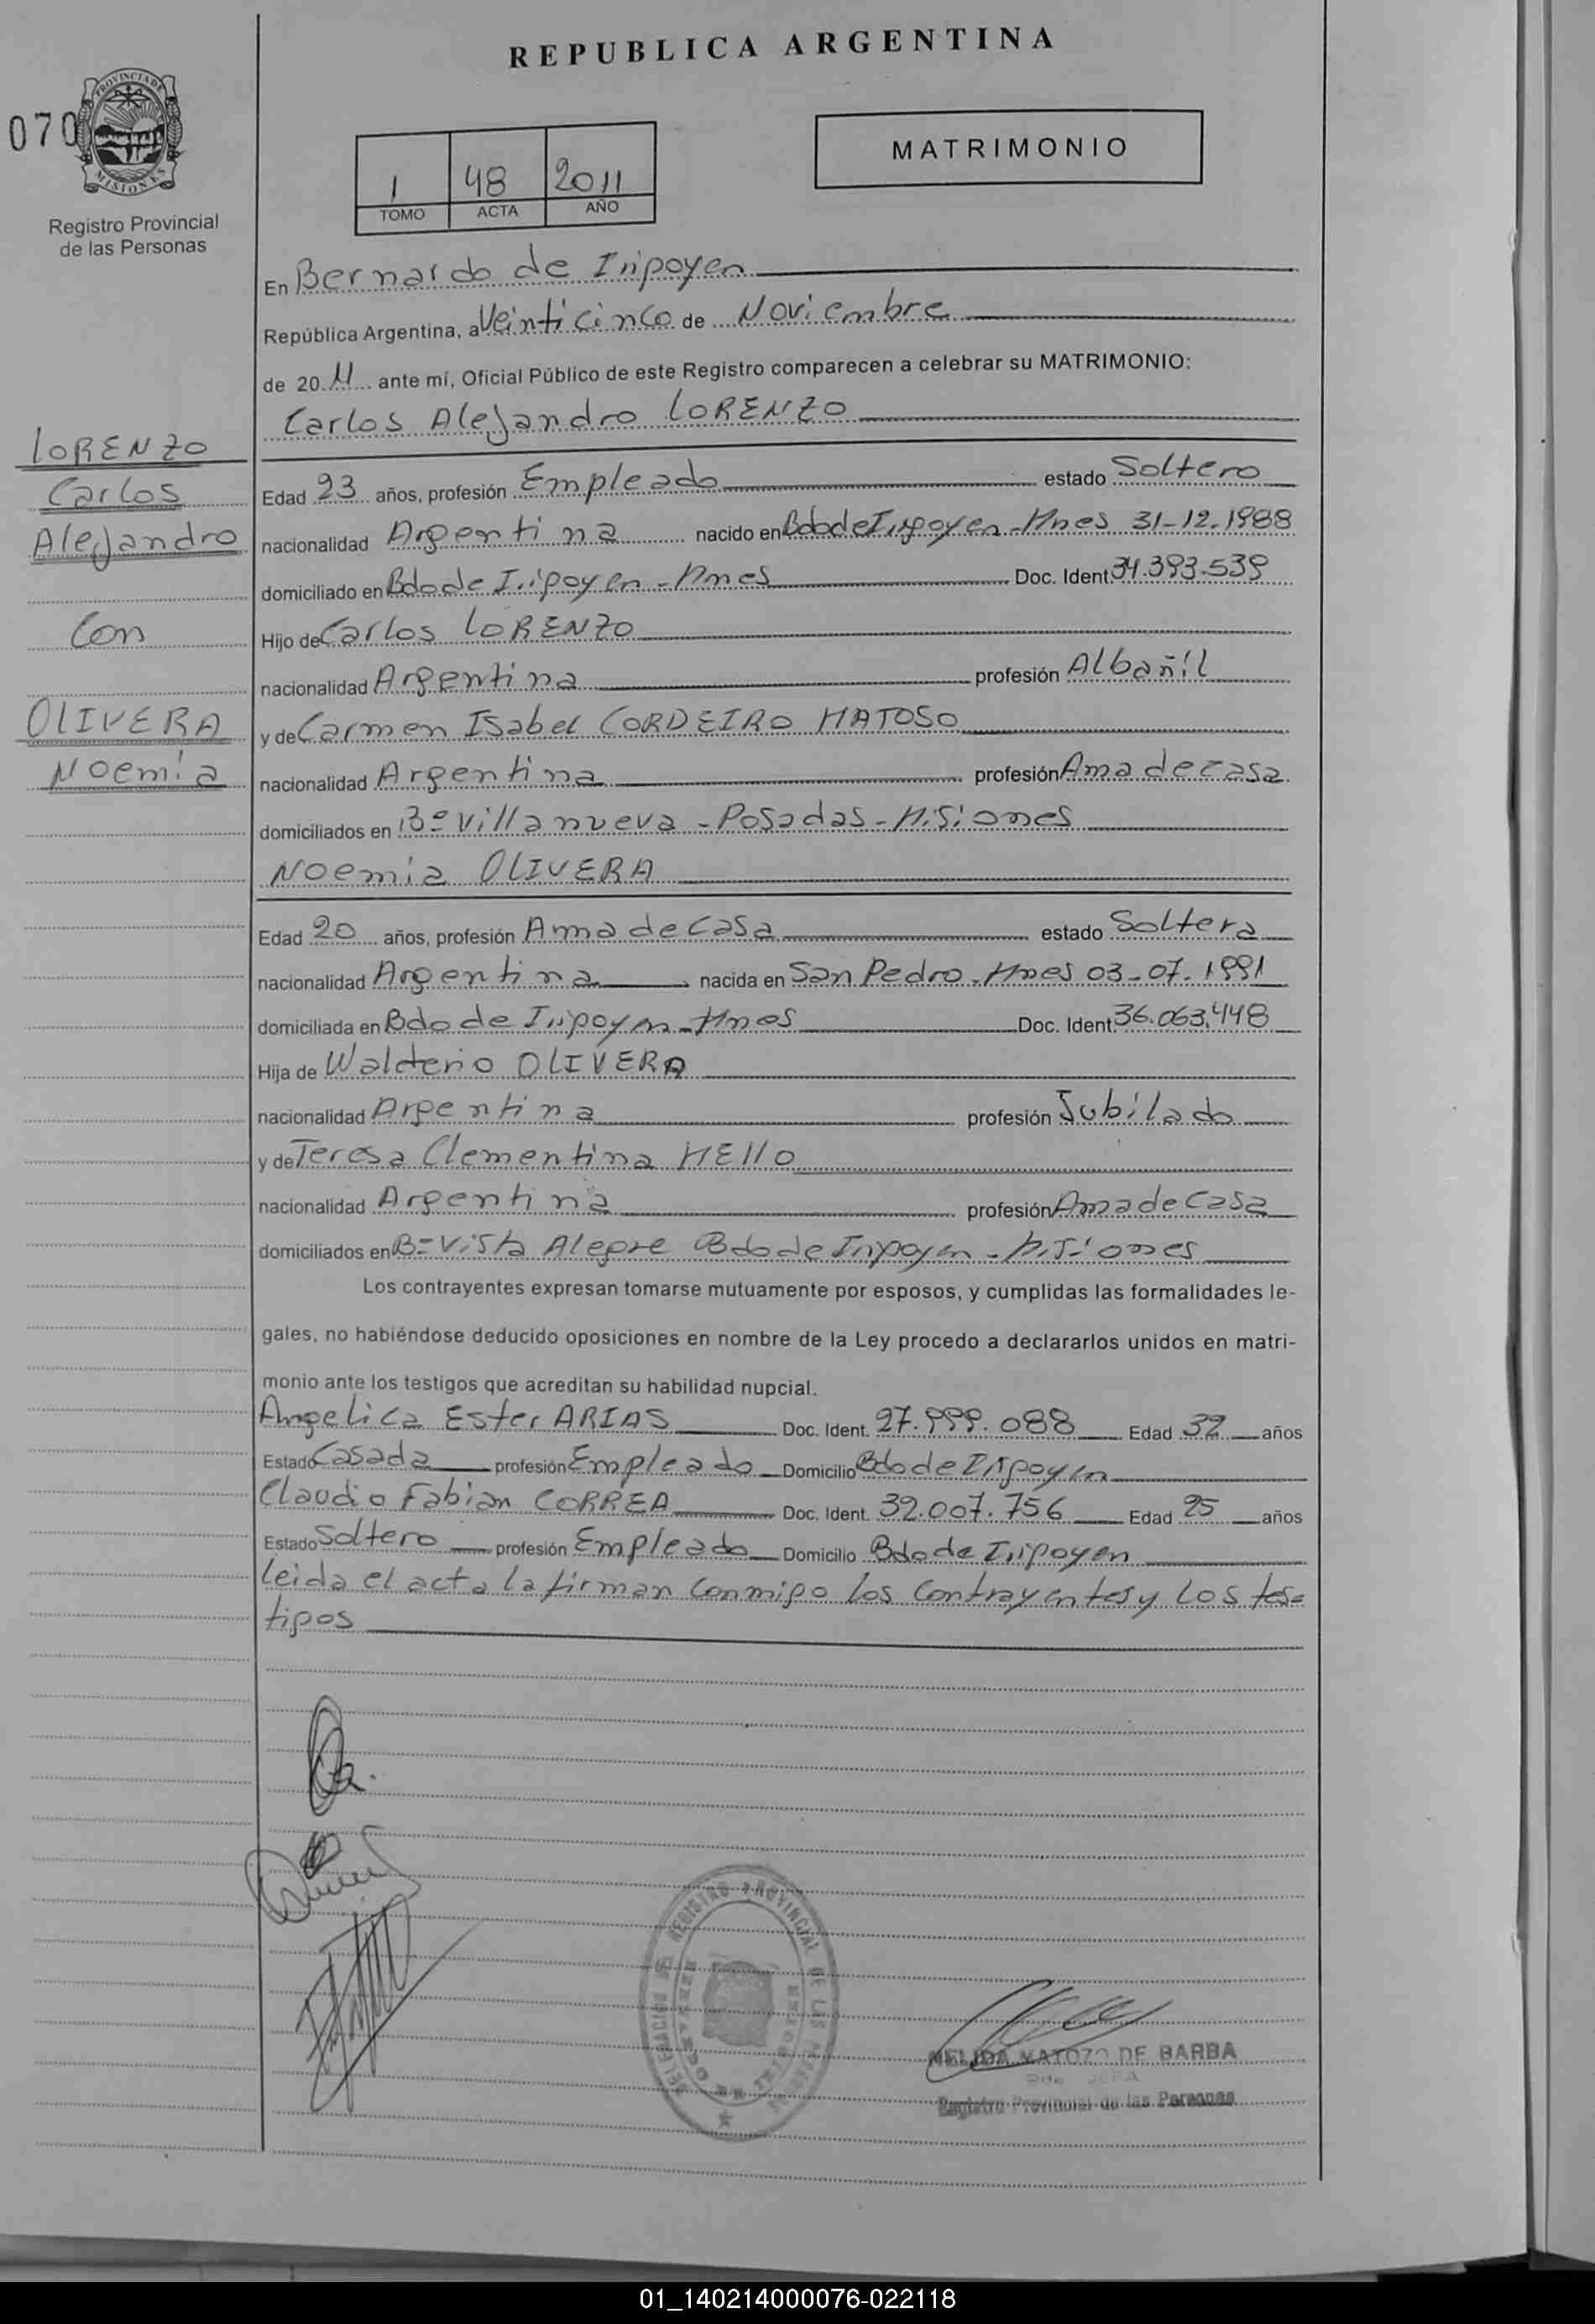 REPUBLICA ARGENTINA
070
PROVINCIA DE
MISIONES
Registro Provincial
de las Personas
1 48 2011
TOMO ACTA AÑO
MATRIMONIO
En Bernardo de Irigoyen
República Argentina, a Veinticinco de Noviembre
de 2011 ante mí, Oficial Público de este Registro comparecen a celebrar su MATRIMONIO:
Carlos Alejandro LORENZO
LORENZO
Carlos
Alejandro
Con
OLIVERA
Noemia
Edad 23 años, profesión Empleado estado Soltero
nacionalidad Argentina nacido en Bdo de Irigoyen - Mnes 31-12-1988
domiciliado en Bdo de Irigoyen - Mnes Doc. Ident. 34.393.539
Hijo de Carlos LORENZO
nacionalidad Argentina profesión Albañil
y de Carmen Isabel CORDEIRO MATOSO
nacionalidad Argentina profesión Ama de casa
domiciliados en Bº Villa nueva - Posadas - Misiones
Noemia OLIVERA
Edad 20 años, profesión Ama de Casa estado Soltera
nacionalidad Argentina nacida en San Pedro - Mnes 03-07-1991
domiciliada en Bdo de Irigoyen - Mnes Doc. Ident. 36.063.448
Hija de OLIVERA
nacionalidad Argentina profesión Jubilado
y de Teresa Clementina MELLO
nacionalidad Argentina profesión Ama de Casa
domiciliados en Bº Vista Alegre Bdo de Irigoyen - Misiones
Los contrayentes expresan tomarse mutuamente por esposos, y cumplidas las formalidades le-
gales, no habiéndose deducido oposiciones en nombre de la Ley procedo a declararlos unidos en matri-
monio ante los testigos que acreditan su habilidad nupcial.
Angelica Ester ARIAS Doc. Ident. 27.999.088 Edad 32 años
Estado Casada profesión Empleado Domicilio Bdo de Irigoyen
Claudio Fabian CORREA Doc. Ident. 32.007.756 Edad 25 años
Estado Soltero profesión Empleado Domicilio Bdo de Irigoyen
leida el acta la firman conmigo los contrayentes y los tes=
tigos
REGISTRO PROVINCIAL DE LAS
NELIDA MATOZO DE BARBA
JEFA
Registro Provincial de las Personas
01_140214000076-022118